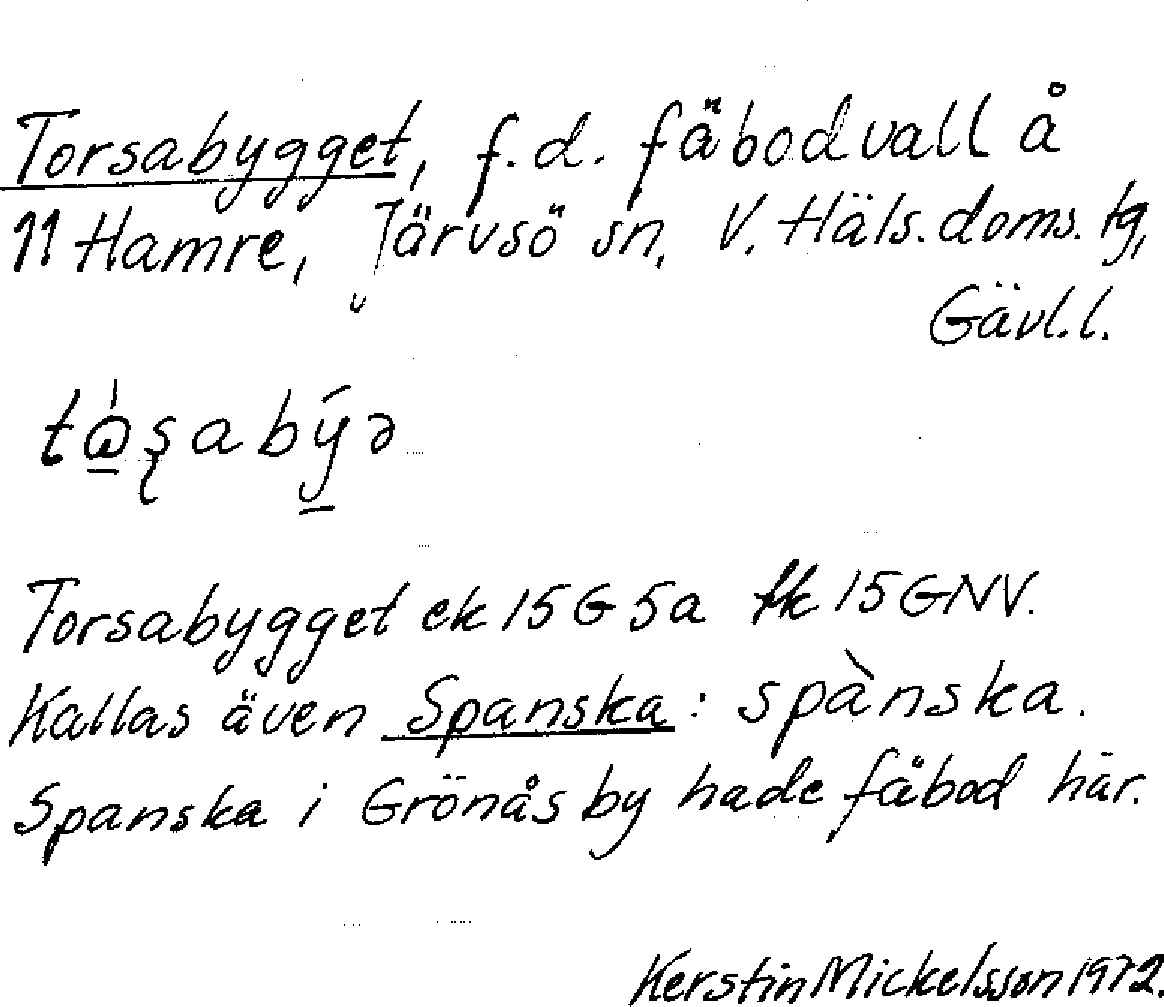 Torsabygget, f.d. fäbodvall å
11 Hamre, Järvsö sn, V. Häls. doms. tg,
Gävl. l.
Torsabygget ek 15 G 5a fk 15 GNV.
Kallas även Spanska: spànska.
Spanska i Grönås by hade fåbod här.
Kerstin Mickelsson 1972.